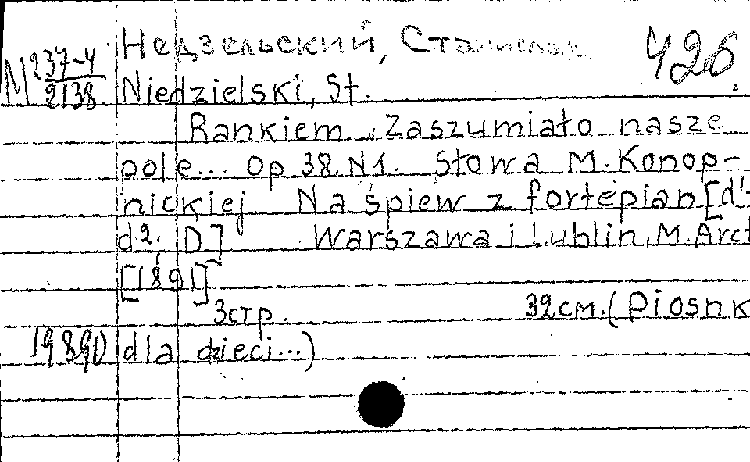 Недзельский, Станислав 426.
М 237-4
2138 Niedzielski, St.
Rankiem. Zaszumiało nasze
pole... Op 38. N1. Słowa M. Konop-
nickiej Na śpiew z fortepian [d¹-
d², D] Warszawa i Lublin, M. Arct
[1891]
3стр. 32см. (Piosnk
19890 dla dzieci...)